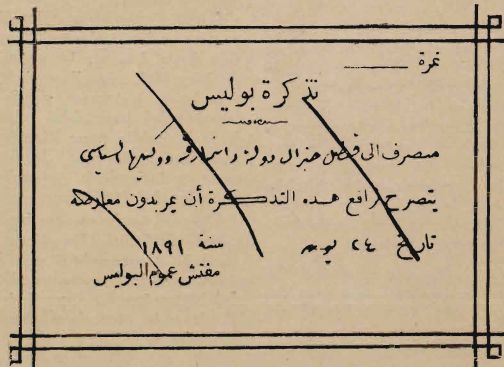 نمرة
تذكرة بوليس
منصرف الى قنصل جنرال دولة دانمارقه ووكيلها السياسى
يتصرح لرافع هذه التذكرة أن يمر بدون معارضه
تاريخ ٢٤ يونيه سنة ١٨٩١
مفتش عموم البوليس